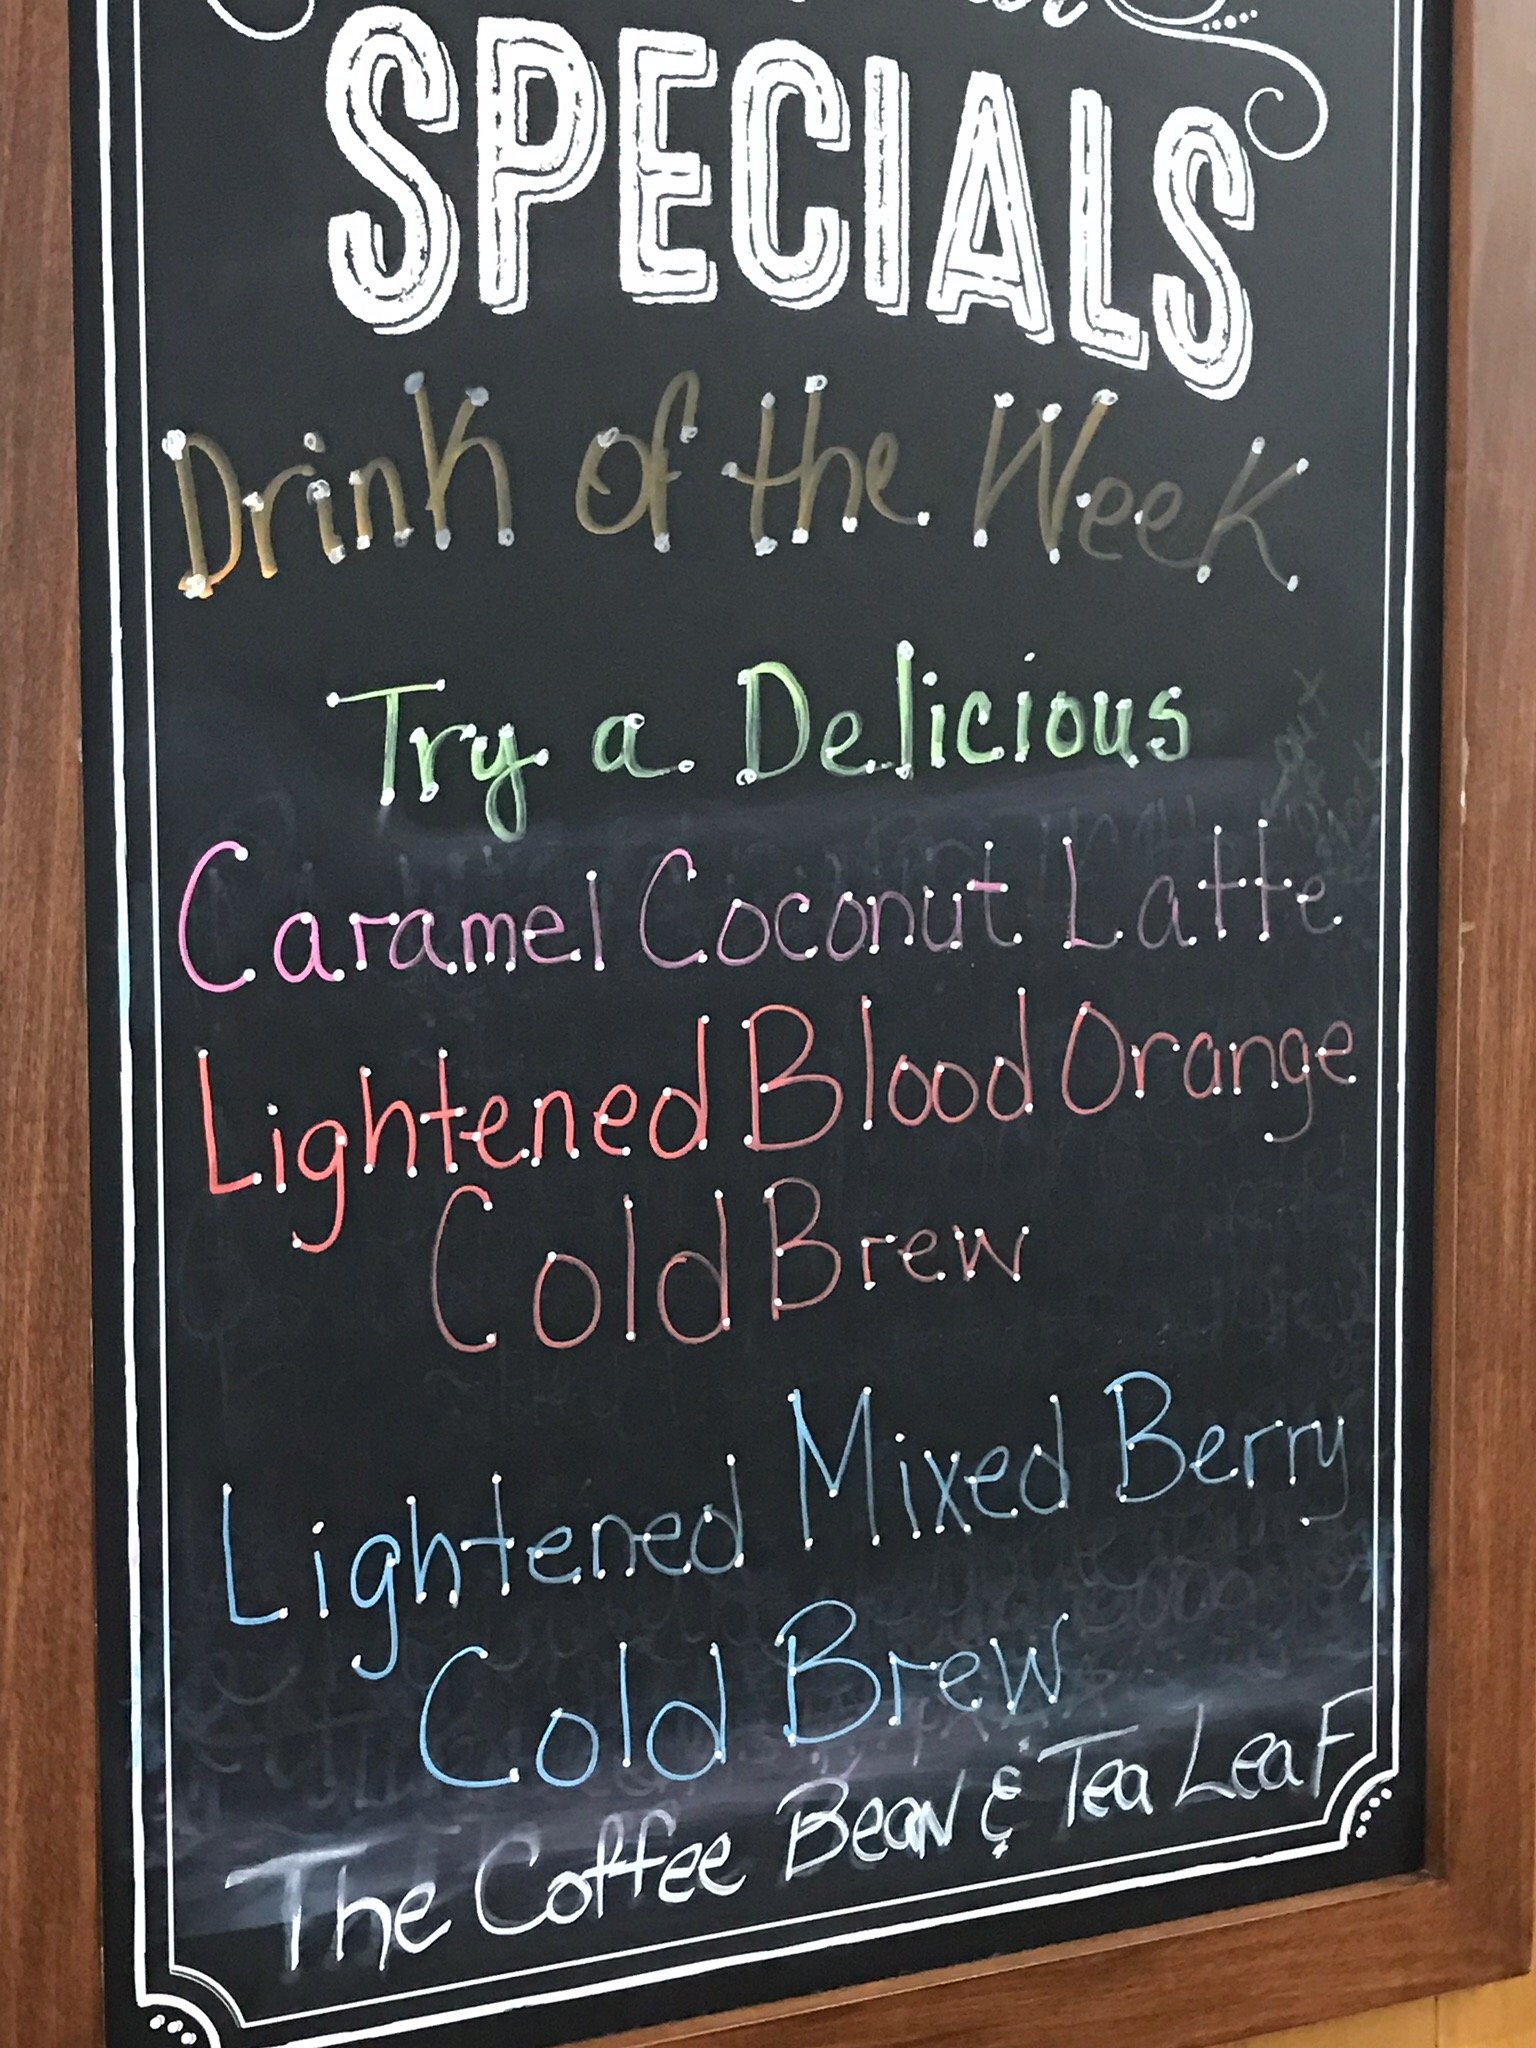 SPECIALS
Drink of the Week
Try a Delicious
Caramel Coconut Latte
Lightened Blood Orange
Cold Brew
Lightened Mixed Berry
Cold Brew
The Coffee Bean & Tea Leaf